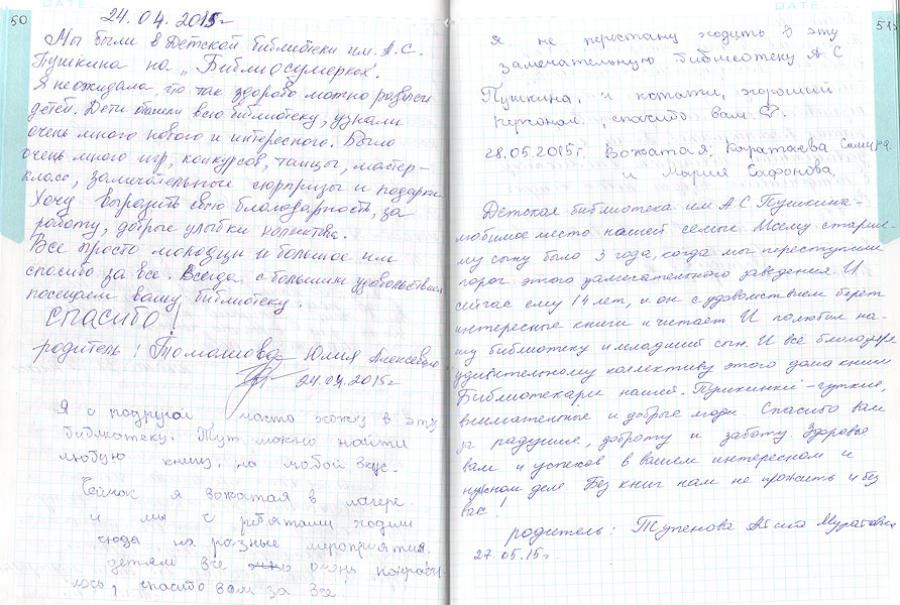 50
24.04.2015г
Мы были в Детской библиотеки им. А.С.
Пушкина на „Библиосумерках".
Я не ожидала что так здорово можно развлечь
детей. Дети обошли всю библиотеку, узнали
очень много нового и интересного. Было
очень много игр, конкурсов, танцы, мастер-
класс, замечательные сюрпризы и подарки.
Хочу выразить свою благодарность, за
работу, добрые улыбки коллектива.
Все просто молодцы и большое им
спасибо за все. Всегда с большим удовольствием
посещаем вашу библиотеку.
СПАСИБО!
родитель: Юлия Алексеевна
24.04.2015г
Я с подругой часто хожу в эту
библиотеку. Тут можно найти
любую книгу, на любой вкус.
Сейчас я вожатая в лагере
и мы с ребятами ходили
сюда на разные мероприятия.
детям все очень понрави-
лось, спасибо вам за все
51
Я не перестану ходить в эту
замечательную библиотеку А С
Пушкина, и кстати, хороший
персонал, спасибо вам ♡.
28.05.2015г. Вожатая: Каратаева
и Мария Сафонова.
Детская библиотека им А.С. Пушкина-
любимое место нашей семьи. Моему старше-
му сыну было 3 года, когда мы переступили
порог этого замечательного заведения. И
сейчас ему 14 лет, и он с удовольствием берет
интересные книги и читает. И полюбил на-
шу библиотеку и младший сын. И все благодаря
удивительному коллективу этого дома книги
Библиотекари нашей „Пушкинки"-чуткие,
внимательные и добрые люди. Спасибо вам
за радушие, доброту и заботу. Здоровья
вам и успехов в вашем интересном и
нужном деле. Без книг нам не прожить и без
вас!
родитель: Муратовна
27.05.15г.